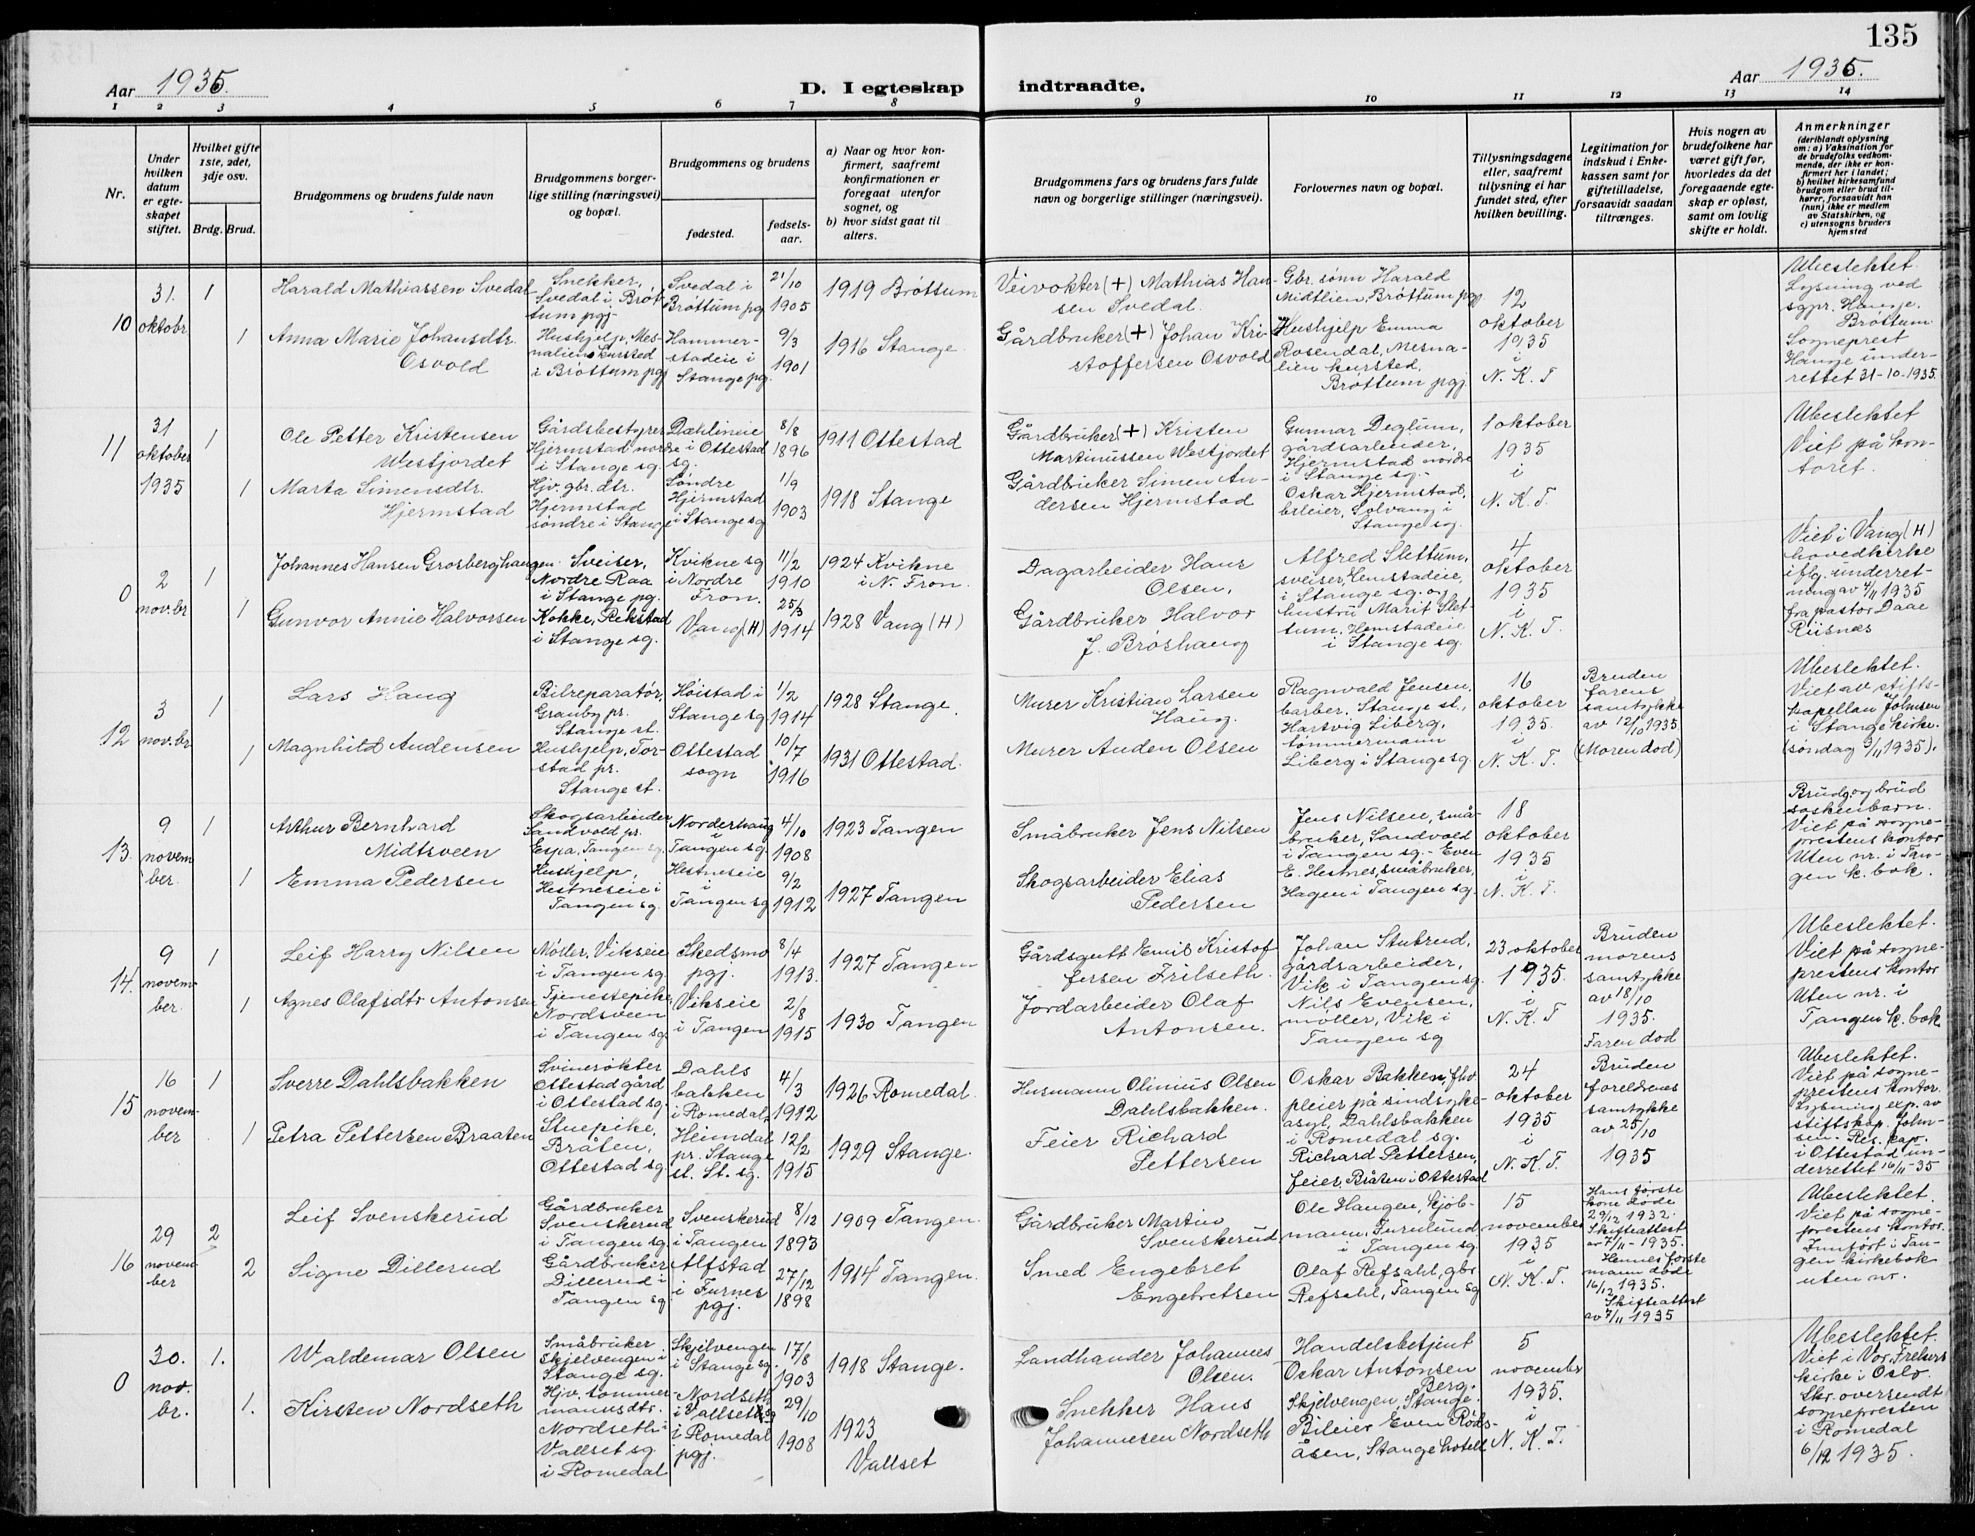 135
Aar 1935.
D. I egteskap indtraadte.
Aar 1935.
1 2 3 4 5 6 7 8 9 10 11 12 13 14
Nr.
Under hvilken datum er egteskapet stiftet.
Hvilket gifte 1ste, 2det, 3dje osv.
Brdg. Brud.
Brudgommens og brudens fulde navn
Brudgommens borgerlige stilling (næringsvei) og bopæl.
Brudgommens og brudens
fødested.
fødselsaar.
a) Naar og hvor konfirmert, saafremt konfirmationen er foregaat utenfor sognet, og
b) hvor sidst gaat til alters.
Brudgommens fars og brudens fars fulde navn og borgerlige stillinger (næringsvei).
Forlovernes navn og bopæl.
Tillysningsdagene eller, saafremt tillysning ei har fundet sted, efter hvilken bevilling.
Legitimation for indskud i Enkekassen samt for giftetilladelse, forsaavidt saadan tiltrænges.
Hvis nogen av brudefolkene har været gift før, hvorledes da det foregaaende egteskap er opløst, samt om lovlig skifte er holdt.
Anmerkninger
(deriblandt oplysning om: a) Vaksination for de brudefolks vedkommende, der ikke er konfirmert her i landet; b) hvilket kirkesamfund brudgom eller brud tilhører, forsaavidt han (hun) ikke er medlem av Statskirken, og c) utensogns bruders hjemsted
10
31. oktobr
1
Harald Mathiassen Svedal
Snekker, Svedal i Brøttum pgj.
Svedal i Brøttum pgj
21/10 1905
1919 Brøttum
Veivokter (+) Mathias Hansen Svedal.
Gbr. sønn Harald Midtlien, Brøttum pgj
12 oktober 1935 i N. K. T
Ubeslektet. Lysning ved sgpr. Hauge, Brøttum. Sogneprest Hauge underrettet 31-10-1935
1
Anna Marie Johansdtr. Osvold
Hushjelp, Mesnalien kursted i Brøttum pgj
Hammerstadeie i Stange pg.
9/3 1901
1916 Stange.
Gårdbruker (+) Johan Kristoffersen Osvold
Hushjelp Emma Rosendal, Mesnalien kursted, Brøttum pgj.
11
31 oktober 1935
1
Ole Petter Kristensen Westjordet
Gårdsbestyrer Hjermstad nordre i Stange sg.
Dæhlineie i Ottestad sg.
8/8 1896
1911 Ottestad
Gårdbruker (+) Kristen Martinussen Westjordet
Gunnar Deglum, gårdsarbeider, Hjermstad nordre i Stange sg.-
1 oktober 1935 i N. K. T.
Ubeslektet Viet på kontoret.
1
Marta Simensdtr. Hjermstad
Hjv. gbr. dtr. Hjermstad søndre i Stange
Søndre Hjermstad i Stange sg
1/9 1903
1918 Stange
Gårdbruker Simen Andersen Hjermstad
Oskar Hjermstad, Solvang i Stange sg.
0
2 nov.br
1
Johannes Hansen Grosberghaugen
Sveiser, Nordre Raa i Stange pg.
Kvikne sg i Nordre Fron.
11/2 1910
1924 Kvikne i N. Fron.
Dagarbeider Hans Olsen,
Alfred Slettum, sveiser, Hemstadeie, i Stange sg. og
4 oktober 1935 i N. K. T.
Viet i Vang (H) hovedkirke iflg. underretning av 4/11 1935 fra pastor Daae Riisnæs
1
Gunvor Annie Halvorsen
Kokke, Rekstad i Stange sg.
Vang (H)
25/3 1914
1928 Vang (H)
Gårdbruker Halvor J. Brøshaug
hustru Marit Slettum, Hemstadeie i Stange sg.
12
3 nov.br
1
Lars Haug
Bilreparatør, Granby pr. Stange st.
Høistad i Stange sg
1/2 1914
1928 Stange.
Murer Kristian Larsen Haug.
Ragnvald Jensen, barber, Stange st.,
16 oktober 1935. i N. K. T.
Bruden farens samtykke av 12/10 1935. (Moren død)
Ubeslektet. Viet av stiftskapellan Johnsen i Stange kirke. (søndag 3/11 1935).
1
Magnhild Audensen
Hushjelp, Torstad pr. Stange st.
Ottestad sogn
10/7 1916
1931 Ottestad.
Murer Auden Olsen
Hartvig Liberg, tømmermann Liberg i Stange sg
13.
9 november.
1
Arthur Bernhard Midtsveen
Skogsarbeider Sandvold pr. Espa, Tangen sg.
Norderhaug i Tangen sg.
4/10 1908
1923 Tangen
Småbruker Jens Nilsen
Jens Nilsen, småbruker, Sandvold i Tangen sg.-
18 oktober 1935 i N. K. T.
Brudg. og brud søskenbarn. Viet på sogneprestens kontor Uten nr. i Tangen k. bok.
1
Emma Pedersen
Hushjelp, Hestneseie i Tangen sg.
Hestneseie i Tangen sg
9/2 1912
1927 Tangen
Skogsarbeider Elias Pedersen
Even E. Hestnes, småbruker, Hagen i Tangen sg.
14.
9 november.
1
Leif Harry Nilsen
Møller, Vikseie i Tangen sg.
Skedsmo pgj.
8/4 1913.
1927 Tangen
Gårdsgutt Emil Kristoffersen Frilseth.
Johan Stubrud, gårdsarbeider, Vik i Tangen sg.
23 oktober 1935. i N. K. T
Bruden morens samtykke av 18/10 1935. Faren død
Ubeslektet. Viet på sogneprestens kontor Uten nr. i Tangen k. bok
1
Agnes Olafsdtr Antonsen
Tjenestepike, Nordsveen i Tangen sg
Vikseie i Tangen
2/8 1915
1930 Tangen
Jordarbeider Olaf Antonsen.
Nils Evensen, møller, Vik i Tangen sg
15
16 november
1
Sverre Dahlsbakken
Svinerøkter Ottestad gård i Ottestad sg.
Dahlsbakken i Romedal
4/3 1912
1926 Romedal.
Husmann Olinius Olsen Dahlsbakken.
Oskar Bakken, fhv. pleier på sindsykeasyl, Dahlsbakken i Romedal sg.
24 oktober 1935 i N. K. T.
Bruden foreldrenes samtykke av 25/10 1935
Ubeslektet. Viet på sogneprestens kontor. Lysning exp. av stiftskap. Johnsen. Res. kap. i Ottestad underrettet 16/11-35
1
Petra Pettersen Braaten
Stuepike, Bråten, Ottestad sg
Heimdal pr. Stange st. St. sg.
12/2 1915
1929 Stange.
Feier Richard Pettersen
Richard Pettersen, feier, Bråten i Ottestad
16
29 november
2
Leif Svenskerud
Gårdbruker Svenskerud i Tangen sg.
Svenskerud i Tangen
8/12 1893
1909 Tangen.
Gårdbruker Martin Svenskerud
Ole Haugen, kjøbmann, Furulund i Tangen sg.
15 november 1935 i N. K. T.
Hans første kone døde 29/12 1932. Skifteattest av 7/11-1935.
Hennes første mann døde 16/12 1935. Skifteattest av 7/11 1935
Ubeslektet. Viet på sogneprestens kontor. Innført i Tangen kirkebok uten nr.
2
Signe Dillerud
Gårdbruker Dillerud i Tangen sg
Alfstad i Furnes pgj.
27/12 1898
1914 Tangen.
Smed Engebret Engebretsen
Olaf Refsahl, gbr Refsahl, Tangen sg
0
30. nov.br.
1.
Waldemar Olsen
Småbruker Skjelvengen i Stange sg.
Skjelvengen i Stange sg.
17/8 1903
1918 Stange.
Landhandler Johannes Olsen.
Handelsbetjent Oskar Antonsen Berg. Skjelvengen, Stange.
5 november 1935. i N. K. T.
Ubeslektet. Viet i Vor Frelsers kirke i Oslo. Skr. oversendt sognepresten i Romedal 6/12 1935.
1.
Kirsten Nordseth
Hjv. tømmermannsdtr. Nordseth i Vallset sg. i Romedal
Nordseth i Vallset sg i Romedal pgj.
29/10 1908
1923 Vallset
Snekker Hans Johannesen Nordseth
Bileier Even Rødsåsen, Stange hotell